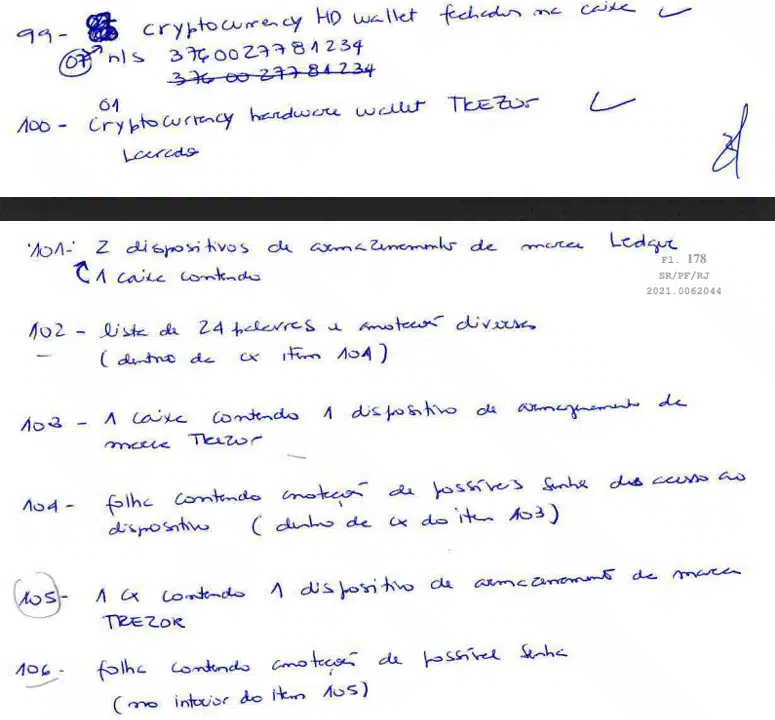 99- cryptocurrency HD wallet fechados na caixa
07 n/s 3760027781234
376 00 27781234
01
100 - Cryptocurrency hardware wallet TREZOR
Lacrado
101- 2 dispositivos de armazenamento de marca Ledger
1 caixa contendo
Fl. 178
SR/PF/RJ
2021.0062044
102 - lista de 24 palavras e anotações diversas
(dentro da cx item 101)
103 - 1 caixa contendo 1 dispositivo de armazenamento da
marca Trezor
104 - folha contendo anotação de possíveis senha acesso ao
dispositivo (dentro da cx do item 103)
105 - 1 cx contendo 1 dispositivo de armazenamento da marca
TREZOR
106 - folha contendo anotação de possível senha
(no interior do item 105)